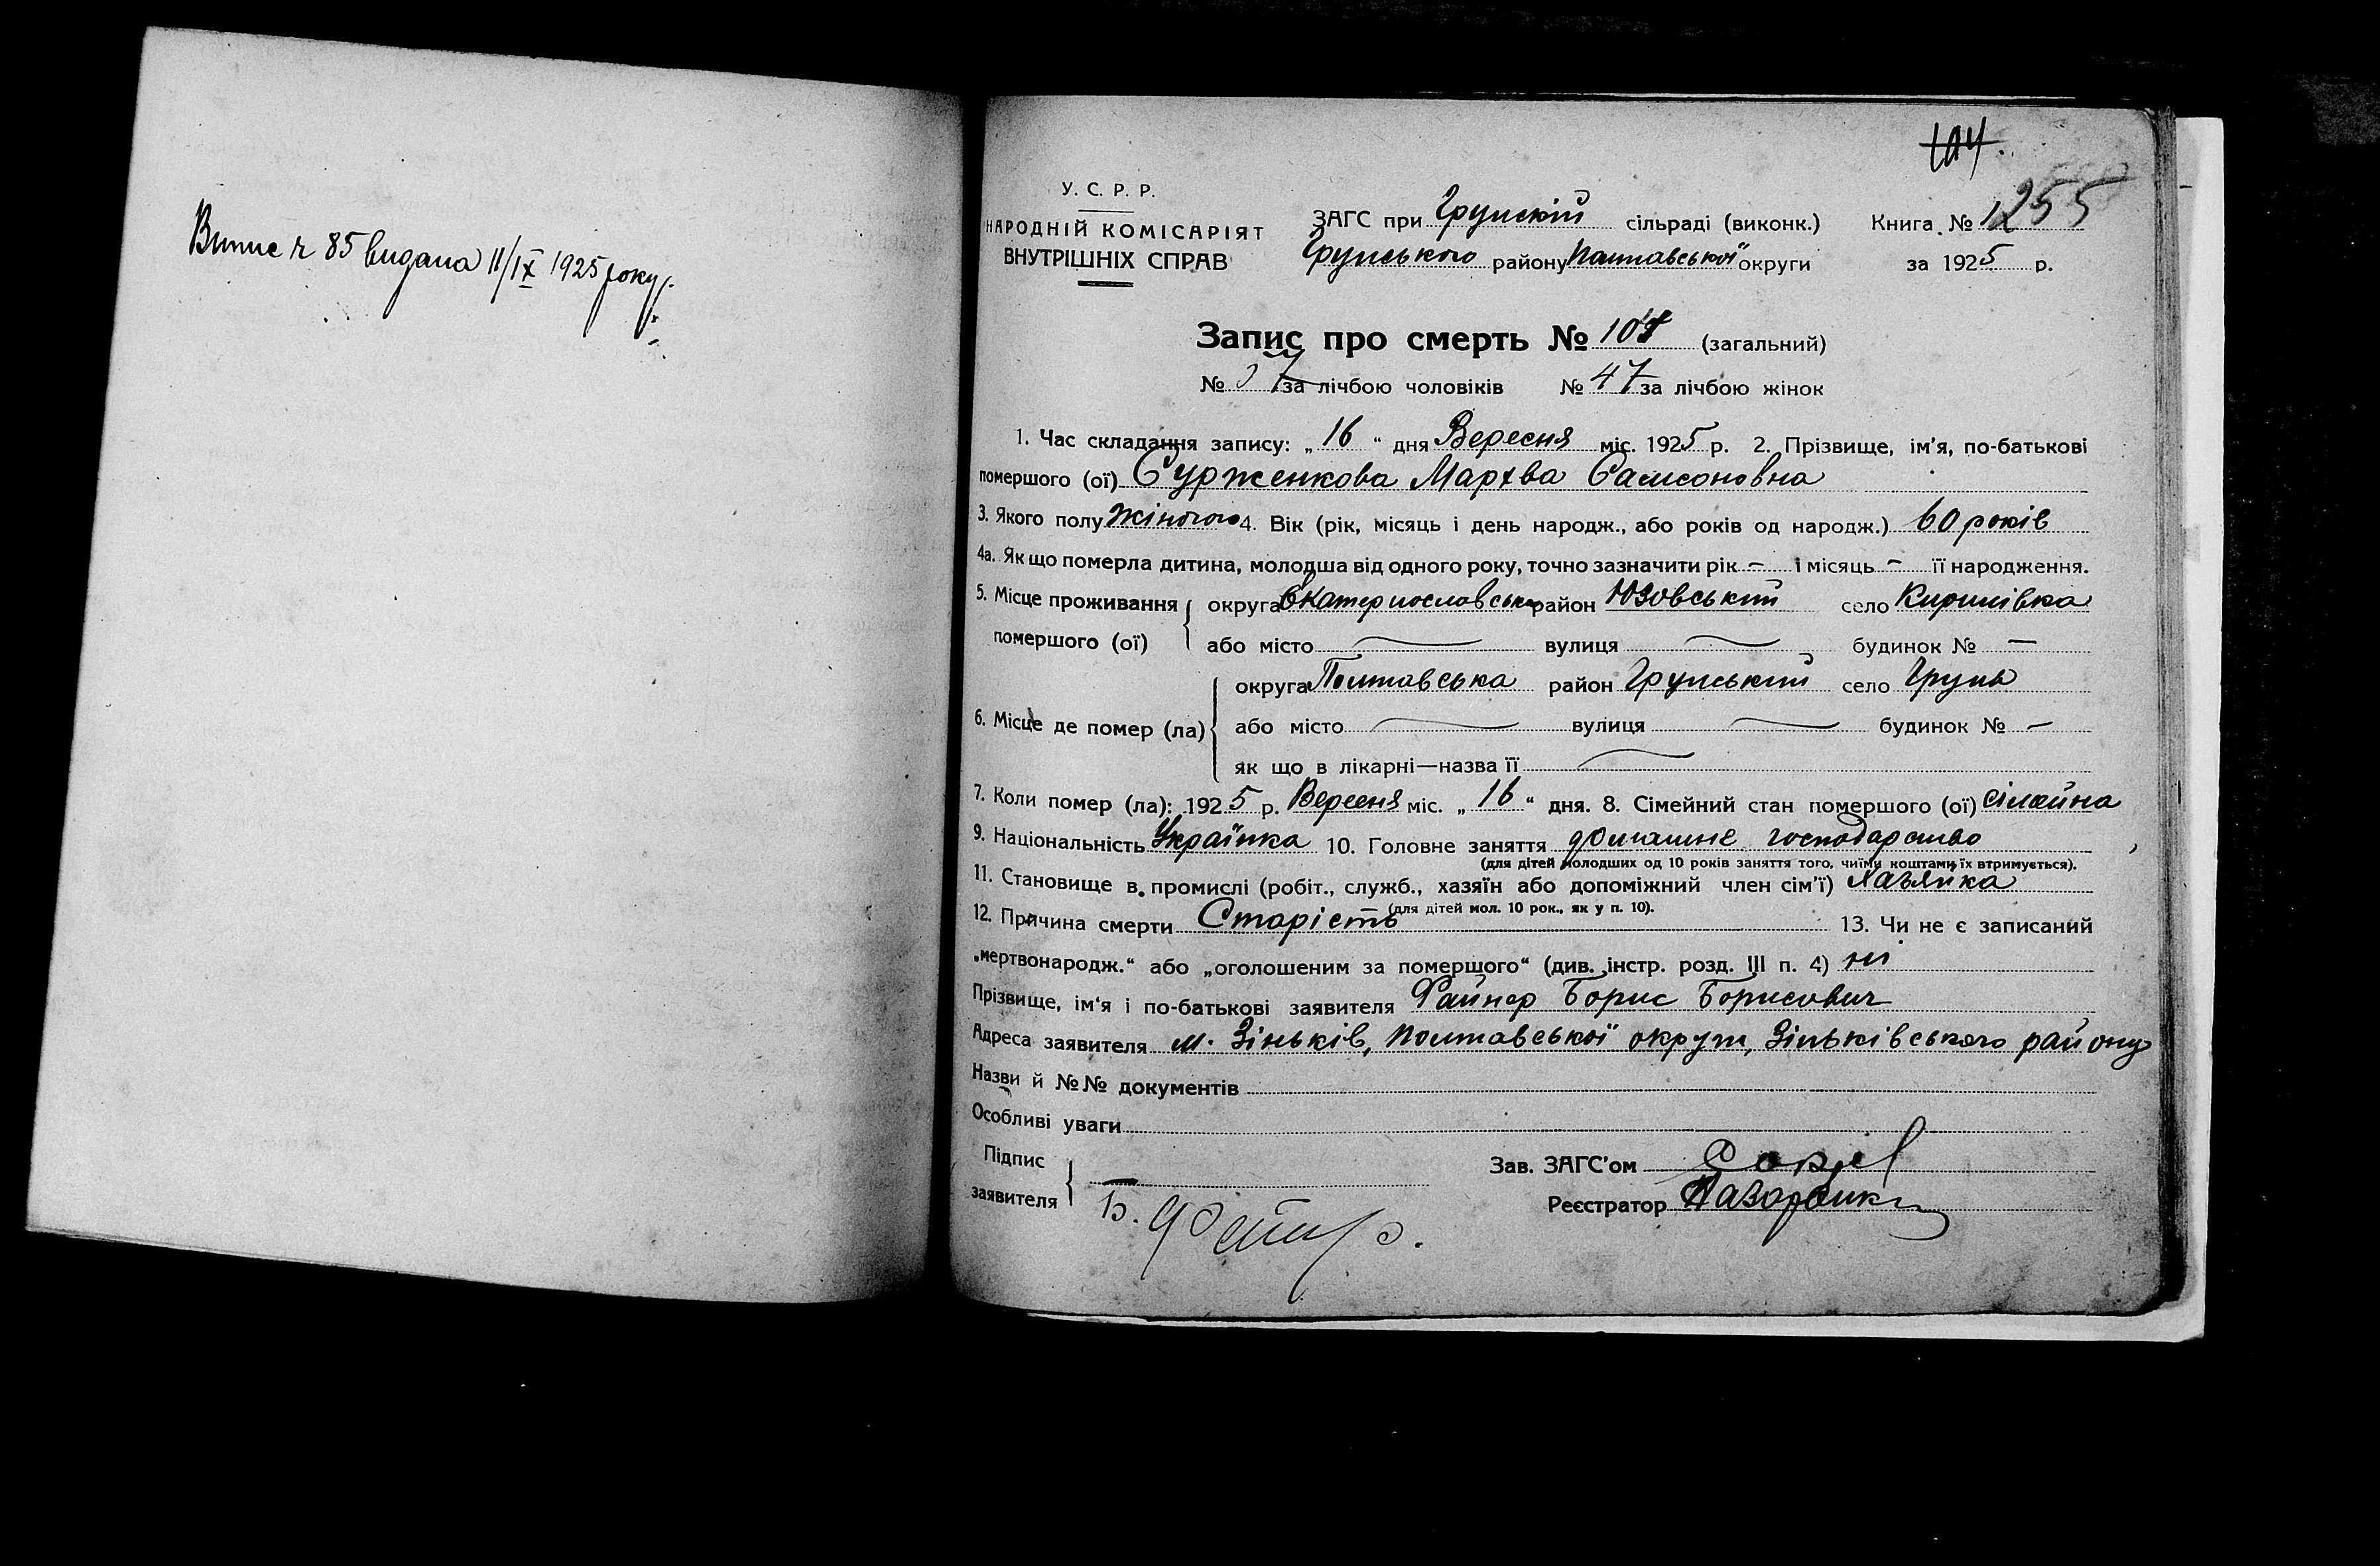 Випис ч 85 видана 11/IX 1925 року.
104.
У. С. Р. Р.
НАРОДНІЙ КОМІСАРІЯТ
ВНУТРІШНІХ СПРАВ
ЗАГС при Грунскій сільраді (виконк.) Книга № 1255
Грунського району Полтавської округи за 1925 р.
Запис про смерть № (загальний)
№ за лічбою чоловіків № 47 за лічбою жінок
1. Час складання запису: „ 16 “ дня Вересня міс. 1925 р. 2. Прізвище, ім'я, по-батькові
помершого (ої) Сурженкова Мархва Самсоновна
3. Якого полу Жіночого 4. Вік (рік, місяць і день народж., або років од народж.) 60 років
4а. Як що померла дитина, молодша від одного року, точно зазначити рік – і місяць – її народження.
5. Місце проживання помершого (ої) округа Екатернославська район Юзовський село Кирилівка
або місто — вулиця — будинок № —
6. Місце де помер (ла) округа Полтавська район Грунський село Грунь
або місто — вулиця — будинок № —
як що в лікарні—назва її —
7. Коли помер (ла): 1925 р. Вересня міс. „ 16 “ дня. 8. Сімейний стан помершого (ої) сімейна
9. Національність Українка 10. Головне заняття домашнє господарство
(для дітей молодших од 10 років заняття того, чиїми коштами їх втримується).
11. Становище в промислі (робіт., служб., хазяїн або допоміжний член сім'ї) хазяйка
(для дітей мол. 10 рок., як у п. 10).
12. Причина смерти Старість 13. Чи не є записаний
„мертвонародж.“ або „оголошеним за помершого“ (див. інстр. розд. III п. 4) ні
Прізвище, ім'я і по-батькові заявителя Файнер Борис Борисович
Адреса заявителя м. Зіньків, Полтавської округи, Зіньківського району
Назви й №№ документів
Особливі уваги
Підпис заявителя Б.
Зав. ЗАГС'ом
Реєстратор